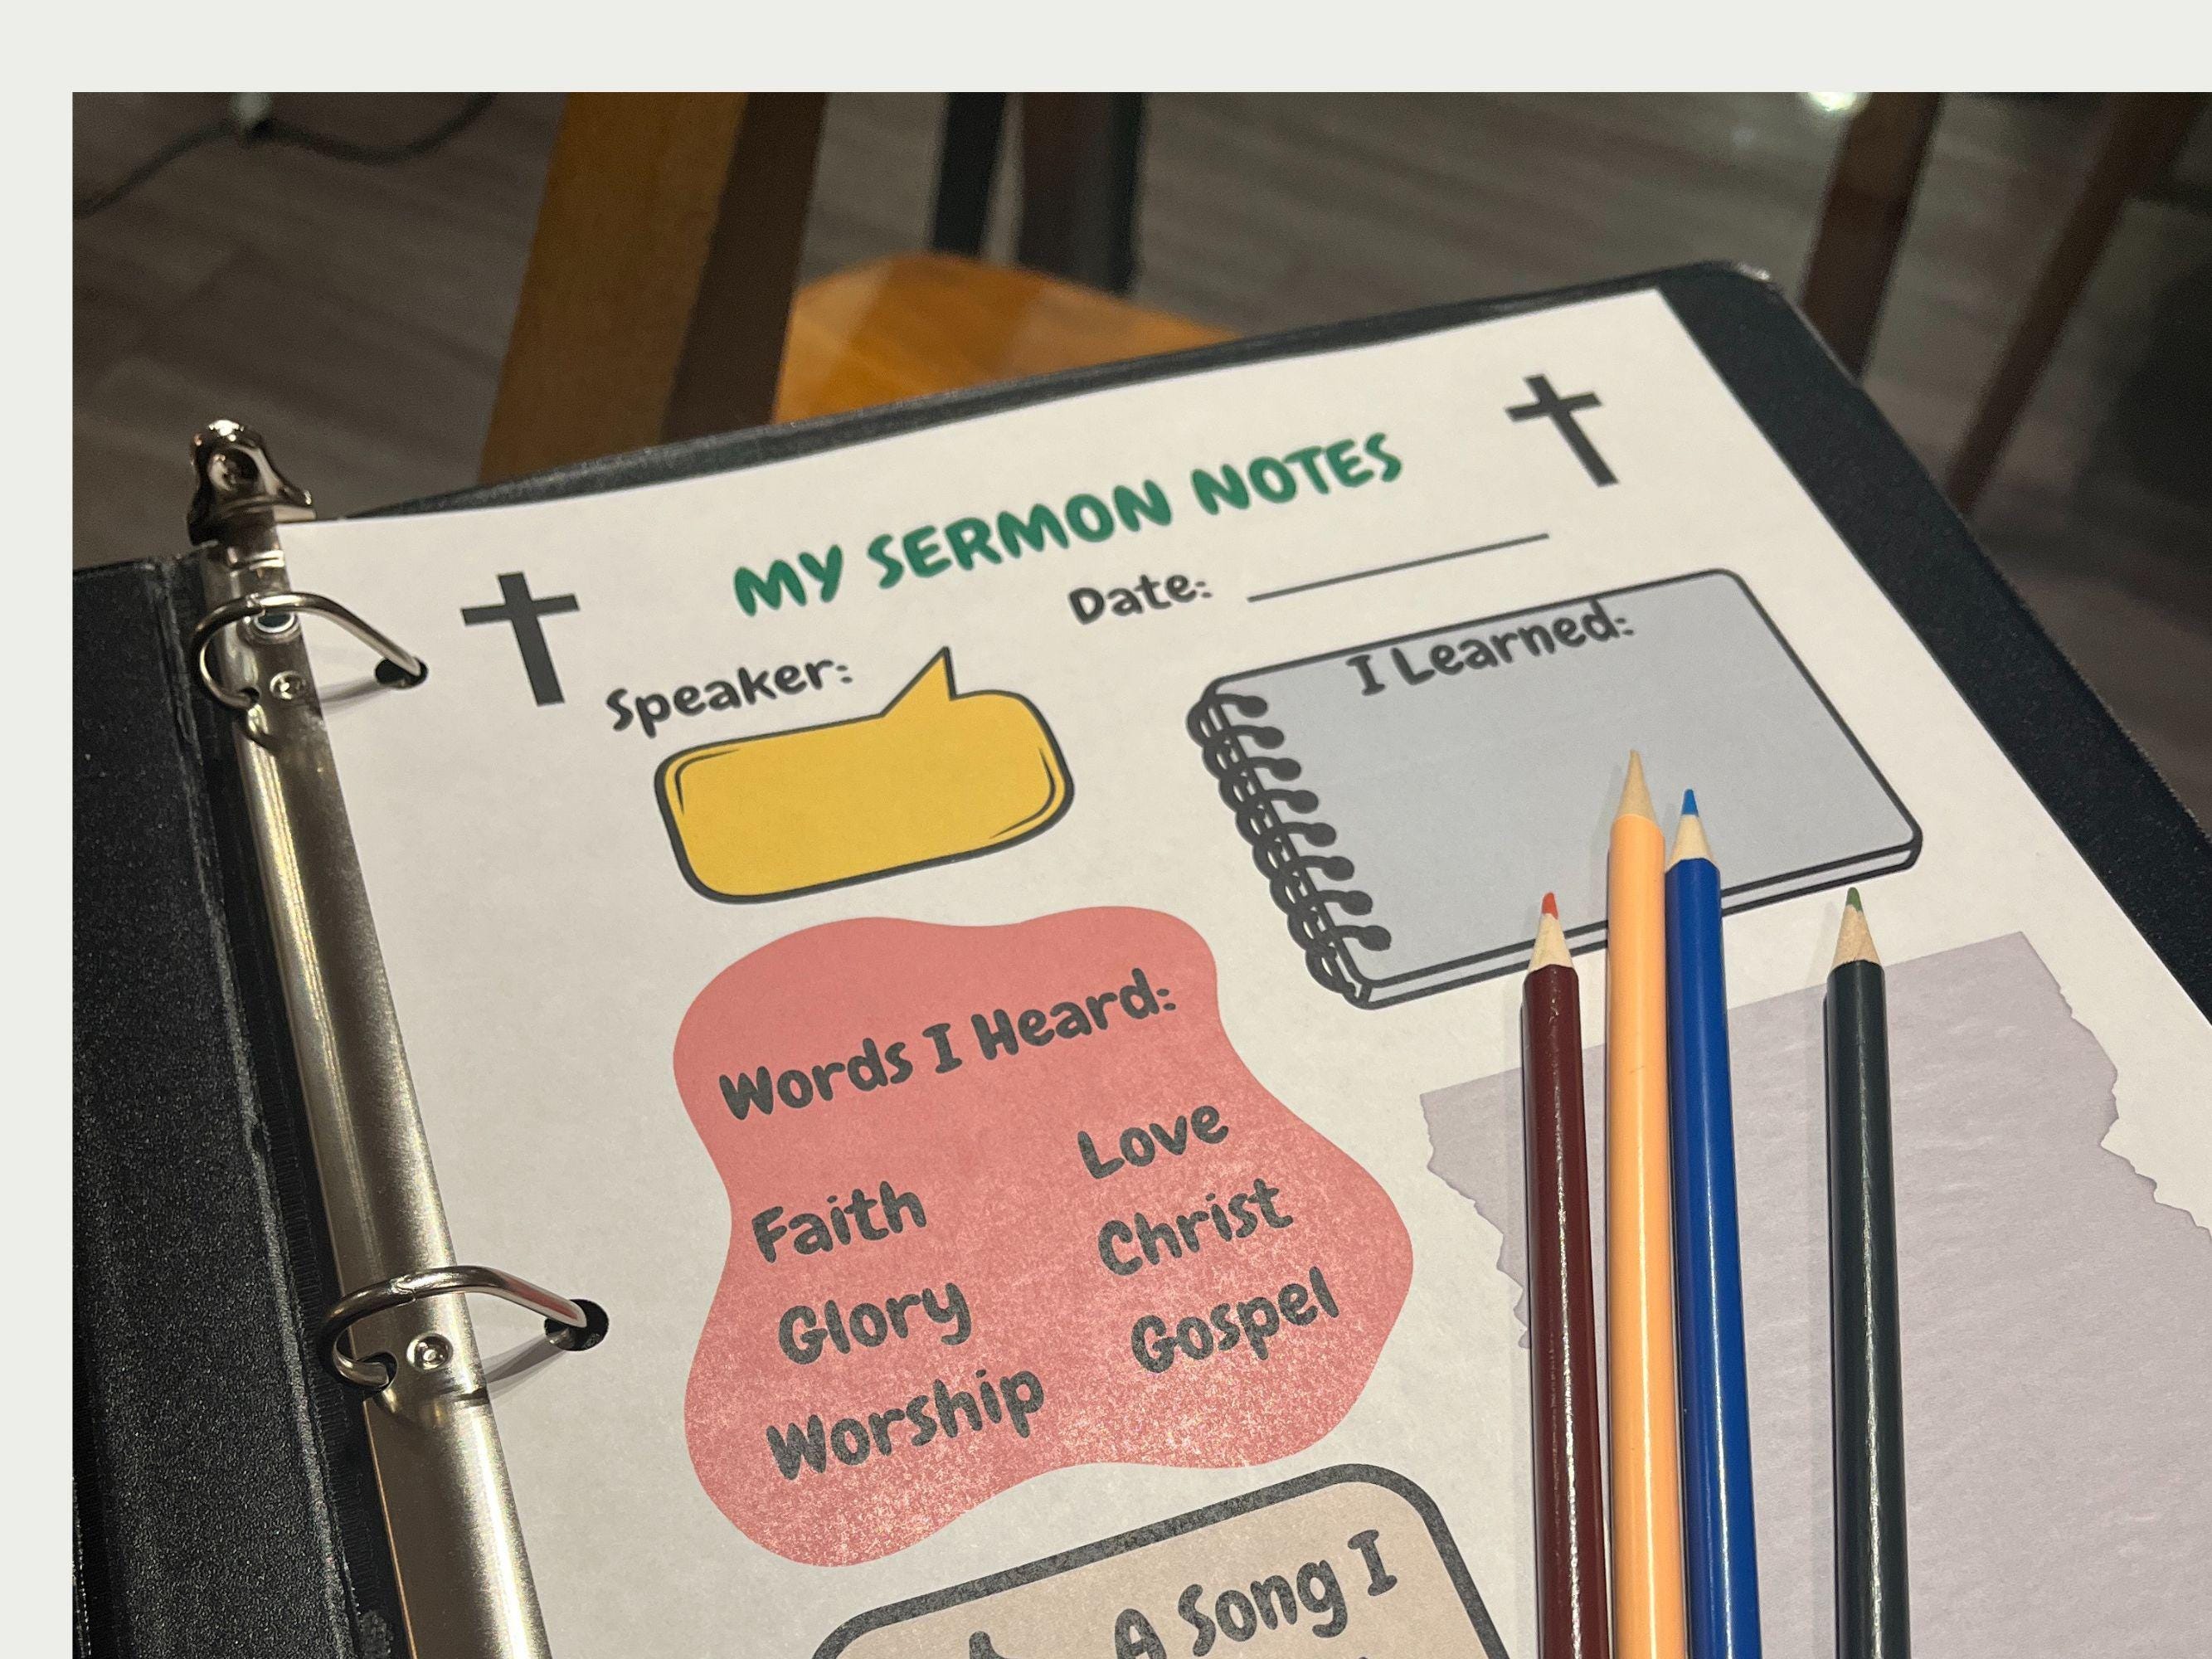 MY SERMON NOTES
Date:
Speaker:
I Learned:
Words I Heard:
Faith
Love
Glory
Christ
Worship
Gospel
A Song I